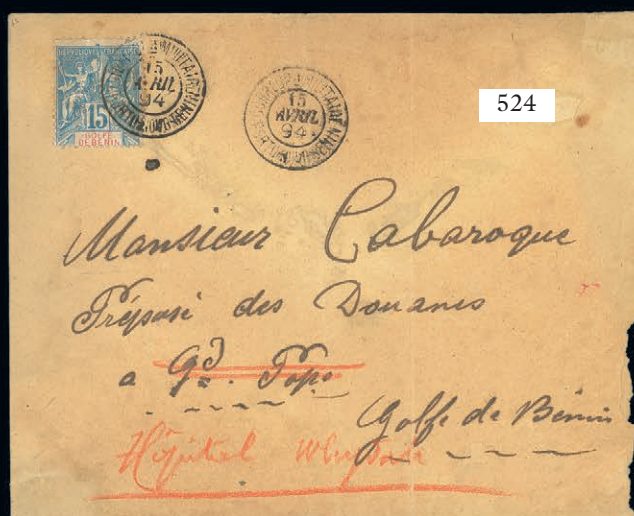 REPUBLIQUE FRANCAISE
15
GOLFE
DE BENIN
15
AVRIL
94
15
AVRIL
94
524
Monsieur Cabaroque
Préposé des Douanes
a Gd. Popo
Golfe de Bénin
Hôpital